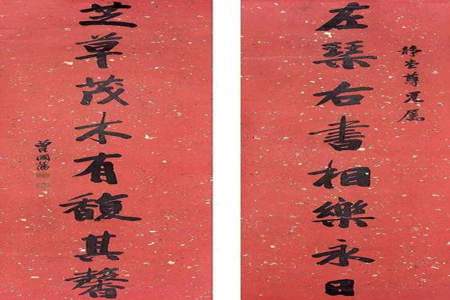 静尊兄属
左琴右書相樂永日
芝草茂木有馥其馨
曾國藩